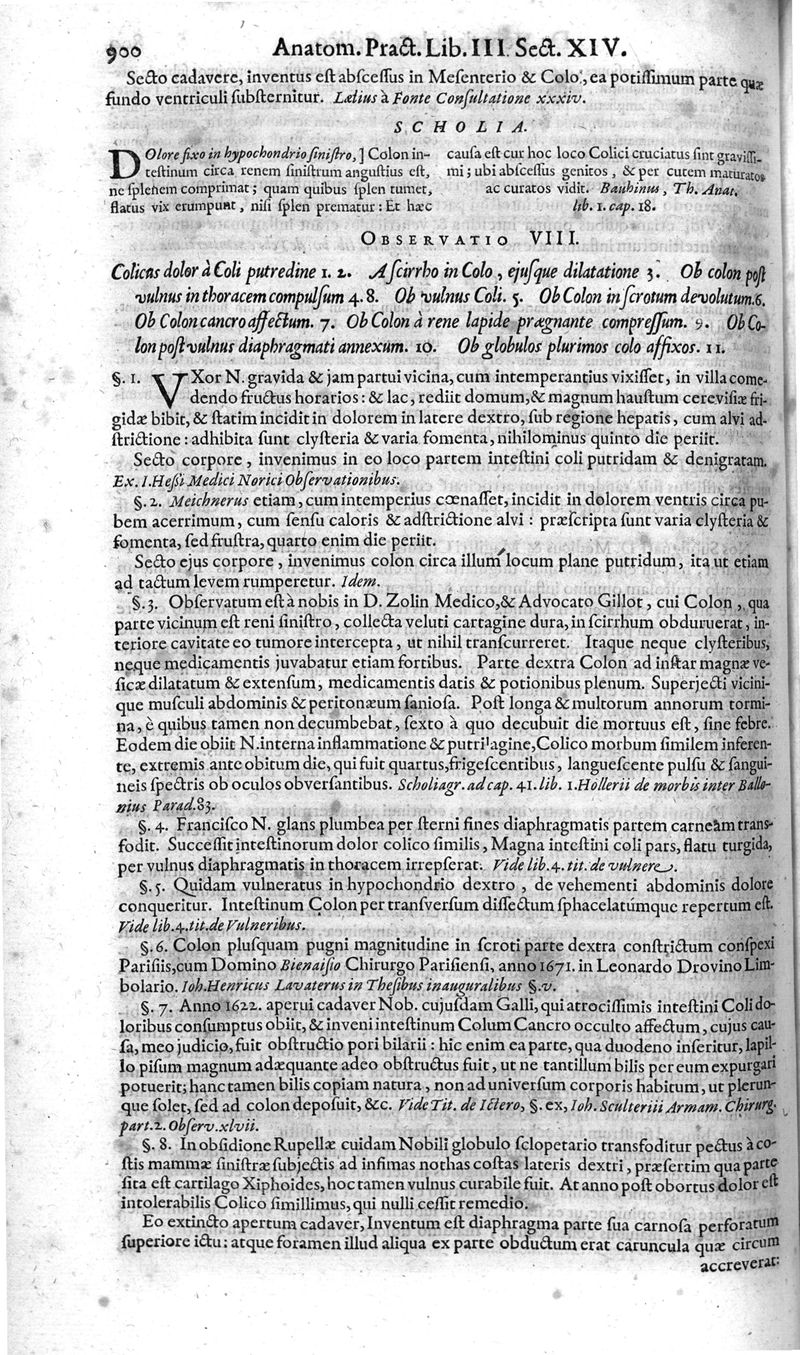 900 Anatom. Pract. Lib. III. Sect. XIV.
Secto cadavere, inventus eſt abſceſſus in Meſenterio & Colo, ea potiſſimum parte quæ
fundo ventriculi ſubſternitur. Lælius à Fonte Conſultatione xxxiv.
SCHOLIA.
DOlore fixo in hypochondrio ſiniſtro,] Colon in-
teſtinum circa renem ſiniſtrum anguſtius eſt,
ne ſplenem comprimat; quam quibus ſplen tumet,
flatus vix erumpunt, niſi ſplen prematur: Et hæc
cauſa eſt cur hoc loco Colici cruciatus ſint graviſſi-
mi; ubi abſceſſus genitos, & per cutem maturatos
ac curatos vidit. Bauhinus, Th. Anat.
lib. 1. cap. 18.
OBSERVATIO VIII.
Colicus dolor à Coli putredine 1. 2. A ſcirrho in Colo, ejuſque dilatatione 3. Ob colon poſt
vulnus in thoracem compulſum 4. 8. Ob vulnus Coli. 5. Ob Colon in ſcrotum devolutum. 6.
Ob Colon cancro affectum. 7. Ob Colon à rene lapide prægnante compreſſum. 9. Ob Co-
lon poſt vulnus diaphragmati annexum. 10. Ob globulos plurimos colo affixos. 11.
§. 1. VXor N. gravida & jam partui vicina, cum intemperantius vixiſſet, in villa come-
dendo fructus horarios: & lac, rediit domum, & magnum hauſtum cereviſiæ fri-
gidæ bibit, & ſtatim incidit in dolorem in latere dextro, ſub regione hepatis, cum alvi ad-
ſtrictione: adhibita ſunt clyſteria & varia fomenta, nihilominus quinto die periit.
Secto corpore, invenimus in eo loco partem inteſtini coli putridam & denigratam.
Ex. I. Heſſi Medici Norici Obſervationibus.
§. 2. Meichnerus etiam, cum intemperius cœnaſſet, incidit in dolorem ventris circa pu-
bem acerrimum, cum ſenſu caloris & adſtrictione alvi: præſcripta ſunt varia clyſteria &
fomenta, ſed fruſtra, quarto enim die periit.
Secto ejus corpore, invenimus colon circa illum locum plane putridum, ita ut etiam
ad tactum levem rumperetur. Idem.
§. 3. Obſervatum eſt à nobis in D. Zolin Medico, & Advocato Gillot, cui Colon, qua
parte vicinum eſt reni ſiniſtro, collecta veluti cartagine dura, in ſcirrhum obduruerat, in-
teriore cavitate eo tumore intercepta, ut nihil tranſcurreret. Itaque neque clyſteribus,
neque medicamentis juvabatur etiam fortibus. Parte dextra Colon ad inſtar magnæ ve-
ſicæ dilatatum & extenſum, medicamentis datis & potionibus plenum. Superjecti vicini-
que muſculi abdominis & peritonæum ſanioſa. Poſt longa & multorum annorum tormi-
na, è quibus tamen non decumbebat, ſexto à quo decubuit die mortuus eſt, ſine febre.
Eodem die obiit N. interna inflammatione & putrilagine, Colico morbum ſimilem inferen-
te, extremis ante obitum die, qui fuit quartus, frigeſcentibus, langueſcente pulſu & ſangui-
neis ſpectris ob oculos obverſantibus. Scholiagr. ad cap. 41. lib. 1. Hollerii de morbis inter Ballo-
nius Parad. 83.
§. 4. Franciſco N. glans plumbea per ſterni fines diaphragmatis partem carneam trans-
fodit. Succeſſit inteſtinorum dolor colico ſimilis, Magna inteſtini coli pars, flatu turgida,
per vulnus diaphragmatis in thoracem irrepſerat. Vide lib. 4. tit. de vulnere.
§. 5. Quidam vulneratus in hypochondrio dextro, de vehementi abdominis dolore
conqueritur. Inteſtinum Colon per tranſverſum diſſectum ſphacelatúmque repertum eſt.
Vide lib. 4. tit. de Vulneribus.
§. 6. Colon pluſquam pugni magnitudine in ſcroti parte dextra conſtrictum conſpexi
Pariſiis, cum Domino Bienaiſio Chirurgo Pariſienſi, anno 1671. in Leonardo Drovino Lim-
bolario. Ioh. Henricus Lavaterus in Theſibus inauguralibus §. v.
§. 7. Anno 1622. aperui cadaver Nob. cujuſdam Galli, qui atrociſſimis inteſtini Coli do-
loribus conſumptus obiit, & inveni inteſtinum Colum Cancro occulto affectum, cujus cau-
ſa, meo judicio, fuit obſtructio pori bilarii: hic enim ea parte, qua duodeno inſeritur, lapil-
lo piſum magnum adæquante adeo obſtructus fuit, ut ne tantillum bilis per eum expurgari
potuerit; hanc tamen bilis copiam natura, non ad univerſum corporis habitum, ut plerun-
que ſolet, ſed ad colon depoſuit, &c. Vide Tit. de Ictero, §. ex, Ioh. Sculteriii Armam. Chirurg.
part. 2. Obſerv. xlvii.
§. 8. In obſidione Rupellæ cuidam Nobili globulo ſclopetario transfoditur pectus à co-
ſtis mammæ ſiniſtræ ſubjectis ad infimas nothas coſtas lateris dextri, præſertim qua parte
ſita eſt cartilago Xiphoides, hoc tamen vulnus curabile fuit. At anno poſt obortus dolor eſt
intolerabilis Colico ſimillimus, qui nulli ceſſit remedio.
Eo extincto apertum cadaver, Inventum eſt diaphragma parte ſua carnoſa perforatum
ſuperiore ictu: atque foramen illud aliqua ex parte obductum erat caruncula quæ circum
accreverat: